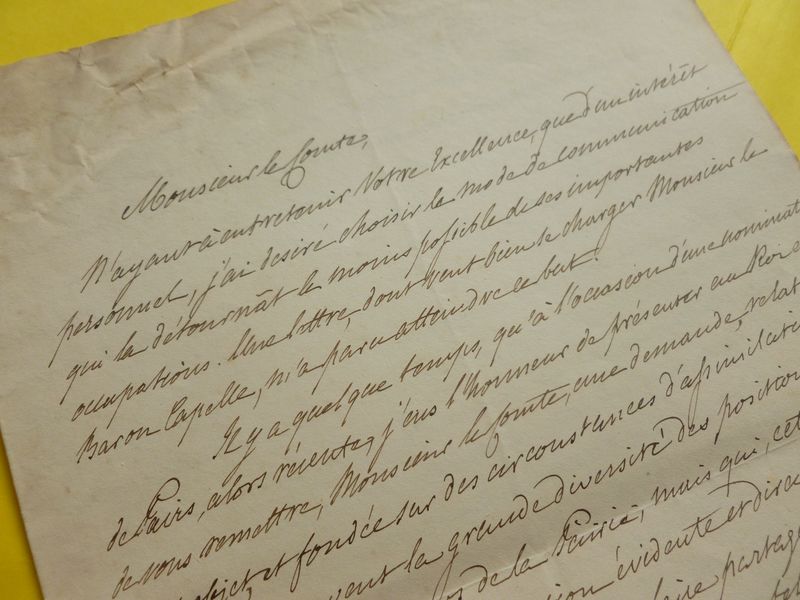 Monsieur le Comte,
N'ayant à entretenir Votre Excellence, que d'un intérêt
personnel, j'ai desiré choisir le mode de communication
qui la détournât le moins possible de ses importantes
occupations. Une lettre, dont veut bien se charger Monsieur le
Baron Capelle, m'a paru atteindre ce but.
Il y a quelque temps, qu'à l'occasion d'une nominat
de Pairs, alors récente, j'eus l'honneur de présenter au Roi e
de vous remettre, Monsieur le Comte, une demande, relat
objet, et fondée sur des circonstances d'assimilati
vent la grande diversité des position
de la Pairie, mais qui, cet
ion évidente et direc
partag